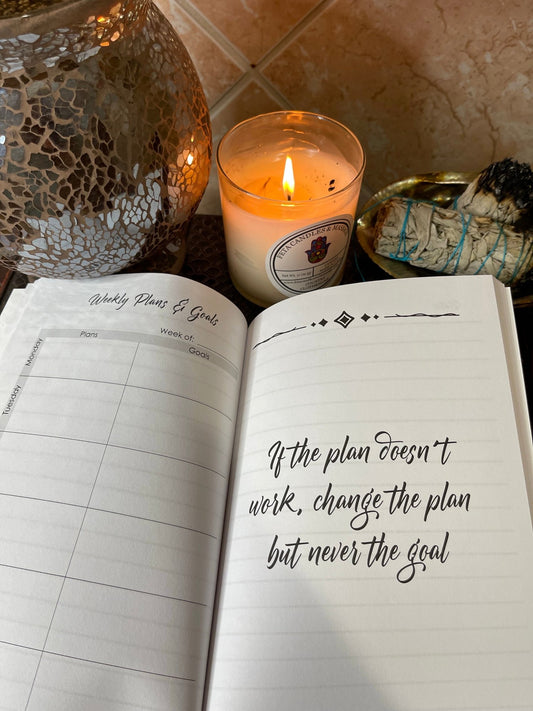 Weekly Plans & Goals
Week of:
Plans
Goals
Monday
Tuesday
If the plan doesn't
work, change the plan
but never the goal
CANDLES &